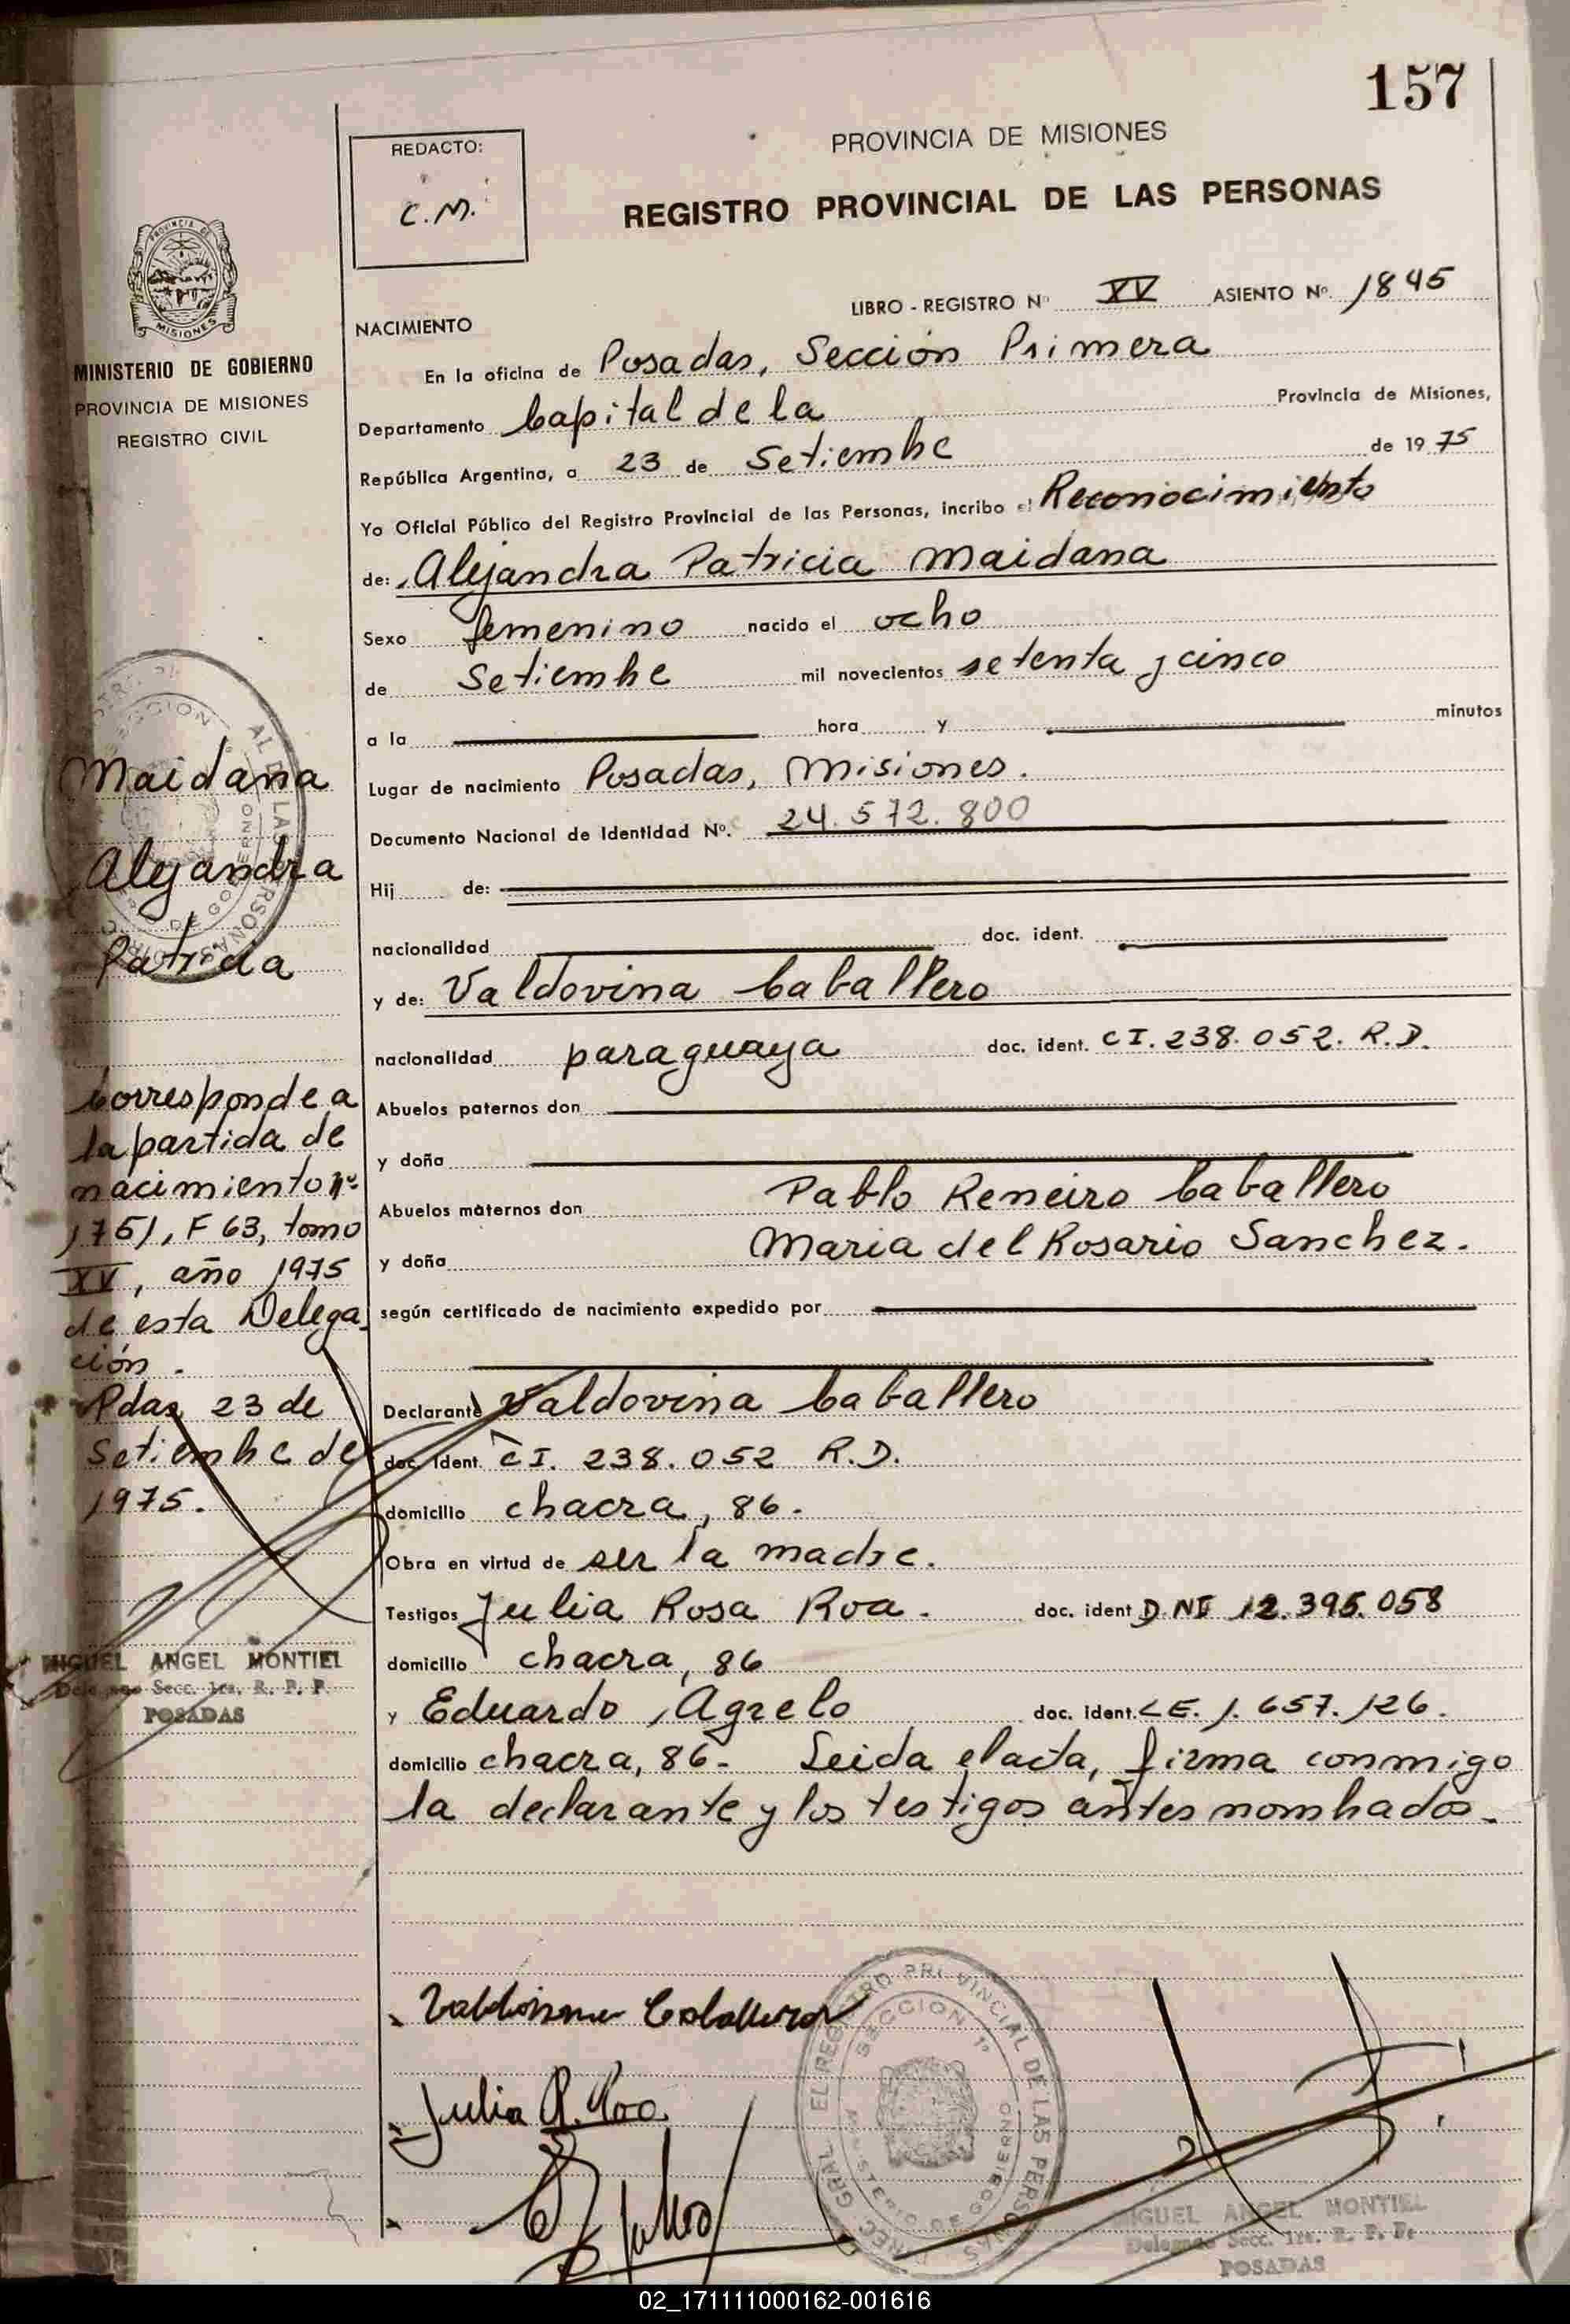 157
REDACTO:
C.M.
PROVINCIA DE MISIONES
REGISTRO PROVINCIAL DE LAS PERSONAS
PROVINCIA DE
MISIONES
MINISTERIO DE GOBIERNO
PROVINCIA DE MISIONES
REGISTRO CIVIL
LIBRO - REGISTRO Nº XV ASIENTO Nº. 1845
NACIMIENTO
En la oficina de Posadas, Sección Primera
Departamento Capital de la Provincia de Misiones,
República Argentina, a 23 de Setiembre de 1975
Yo Oficial Público del Registro Provincial de las Personas, incribo el Reconocimiento
de: Alejandra Patricia Maidana
Sexo femenino nacido el ocho
de Setiembre mil novecientos setenta y cinco
a la hora y minutos
Lugar de nacimiento Posadas, Misiones.
Documento Nacional de Identidad Nº. 24.572.800
Hij de:
nacionalidad doc. ident.
y de: Valdovina Caballero
nacionalidad paraguaya doc. ident. CI. 238.052. R.D.
Abuelos paternos don
y doña
Abuelos maternos don Pablo Reneiro Caballero
y doña Maria del Rosario Sanchez.
según certificado de nacimiento expedido por
Declarante Valdovina Caballero
doc. ident. CI. 238.052 R.D.
domicilio chacra, 86.
Obra en virtud de ser la madre.
Testigos Julia Rosa Roa. doc. ident DNI 12.395.058
domicilio chacra, 86
y Eduardo Agrelo doc. ident. LE. 1.657.126.
domicilio chacra, 86. Leida el acta, firma conmigo
la declarante y los testigos antes nombrados.
Maidana
Alejandra
Patricia
Corresponde a
la partida de
nacimiento nº
1751, F 63, tomo
XV, año 1975
de esta Delega
ción.
Pdas, 23 de
Setiembre de
1975.
MIGUEL ANGEL MONTIEL
Delegado Secc. 1ra. R. P. P.
POSADAS
Valdovina Caballero
Julia R. Roa
DIREC. GRAL. EL REGISTRO PROVINCIAL DE LAS PERSONAS
SECCION 1ª
MINISTERIO DE GOBIERNO
MIGUEL ANGEL MONTIEL
Delegado Secc. 1ra. R. P. P.
POSADAS
02_171111000162-001616